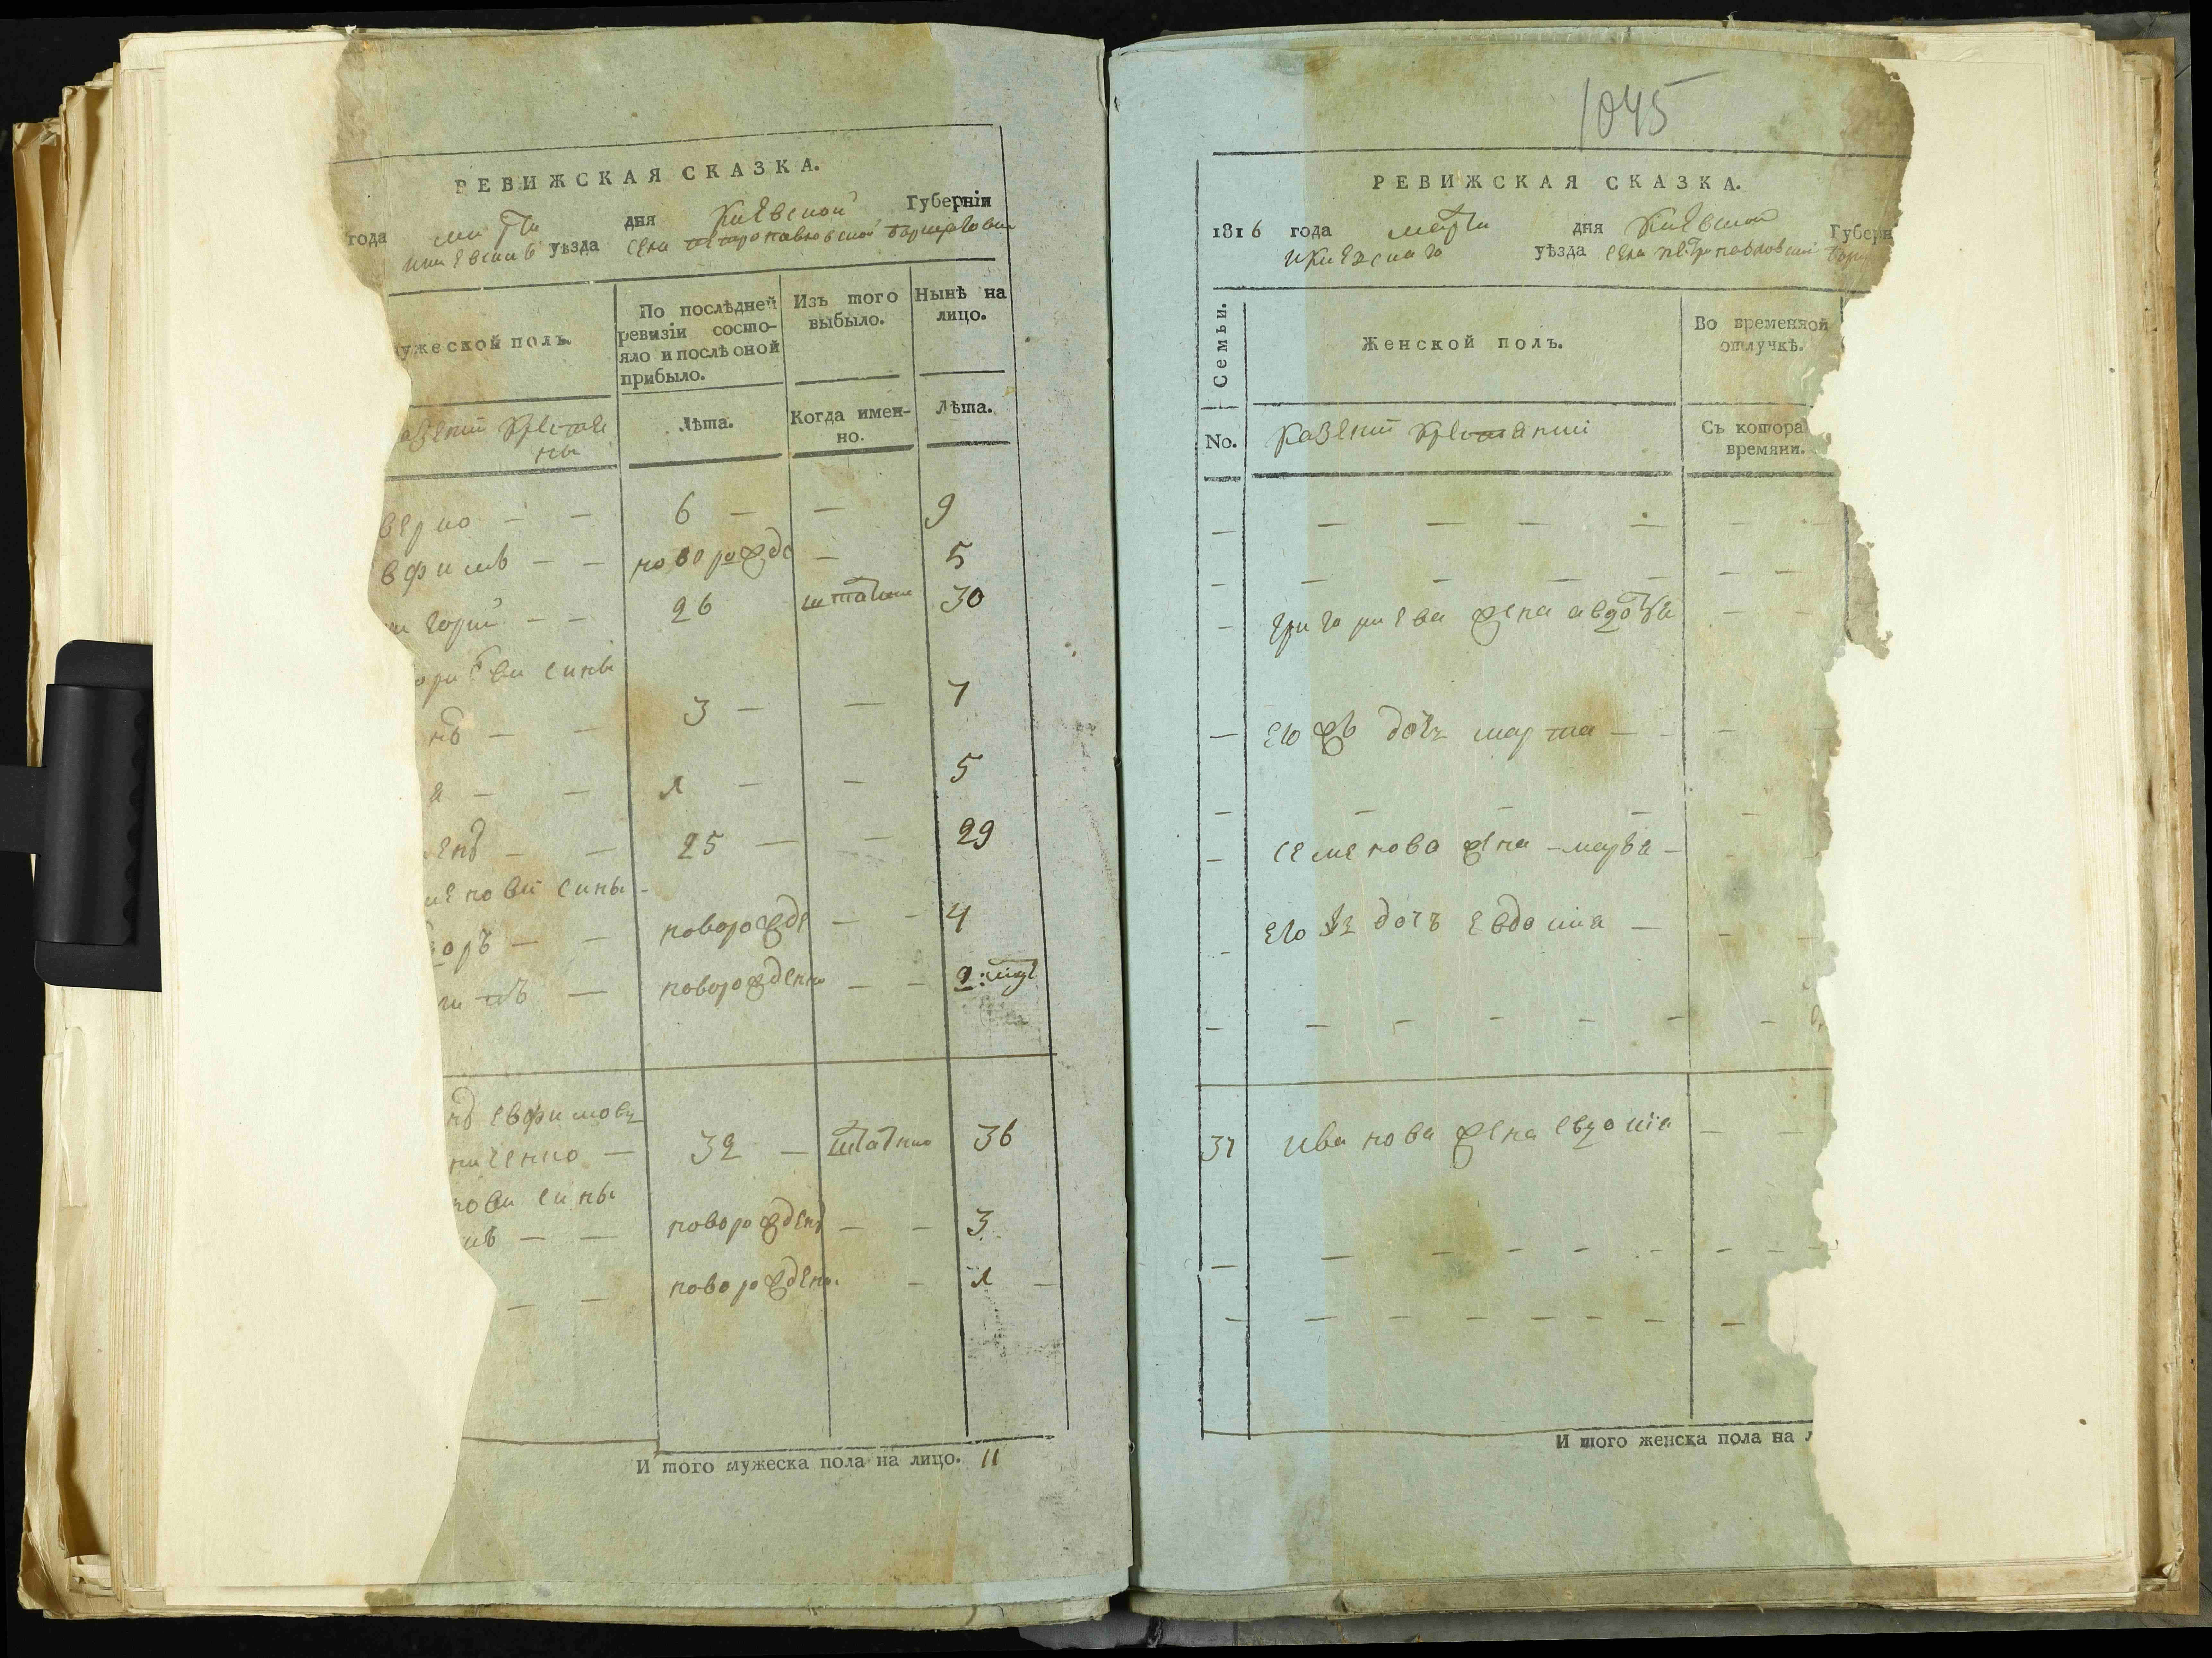 РЕВИЖСКАЯ СКАЗКА.
года марта дня Киевской Губерніи
уѣзда села петропавловской
ужеской полъ.
По послѣдней ревизіи состо-
яло и послѣ оной
прибыло.
Изъ того
выбыло.
Нынѣ на
лицо.
Лѣта.
Когда имен-
но.
Лѣта.
азеннии крестяне
6 — — 9
вфимъ — — новорожде — 5
горий — — 26 30
сины
нъ — — 3 — — 7
я — — 1 — — 5
енъ — — 25 — — 29
менови сины
оръ — — новорожде — — 4
новорожденно — —
нъ евфимовъ
ниченко — 32 — 36
нови сины
мъ — — новорожденъ — — 3
— — новорожденъ. — 1 —
И того мужеска пола на лицо. 11
1045
РЕВИЖСКАЯ СКАЗКА.
1816 года марта дня Киевской Губерн
уѣзда села петропавловской
Семьи.
Женской полъ.
Во временной
отлучкѣ.
No.
Казеннии крестянки
Съ котора
времяни.
григориева жена авдотя
его жъ дочъ марта —
семенова жена — марья —
его дочъ евдокия —
37 иванова жена евдокия — —
И того женска пола на л